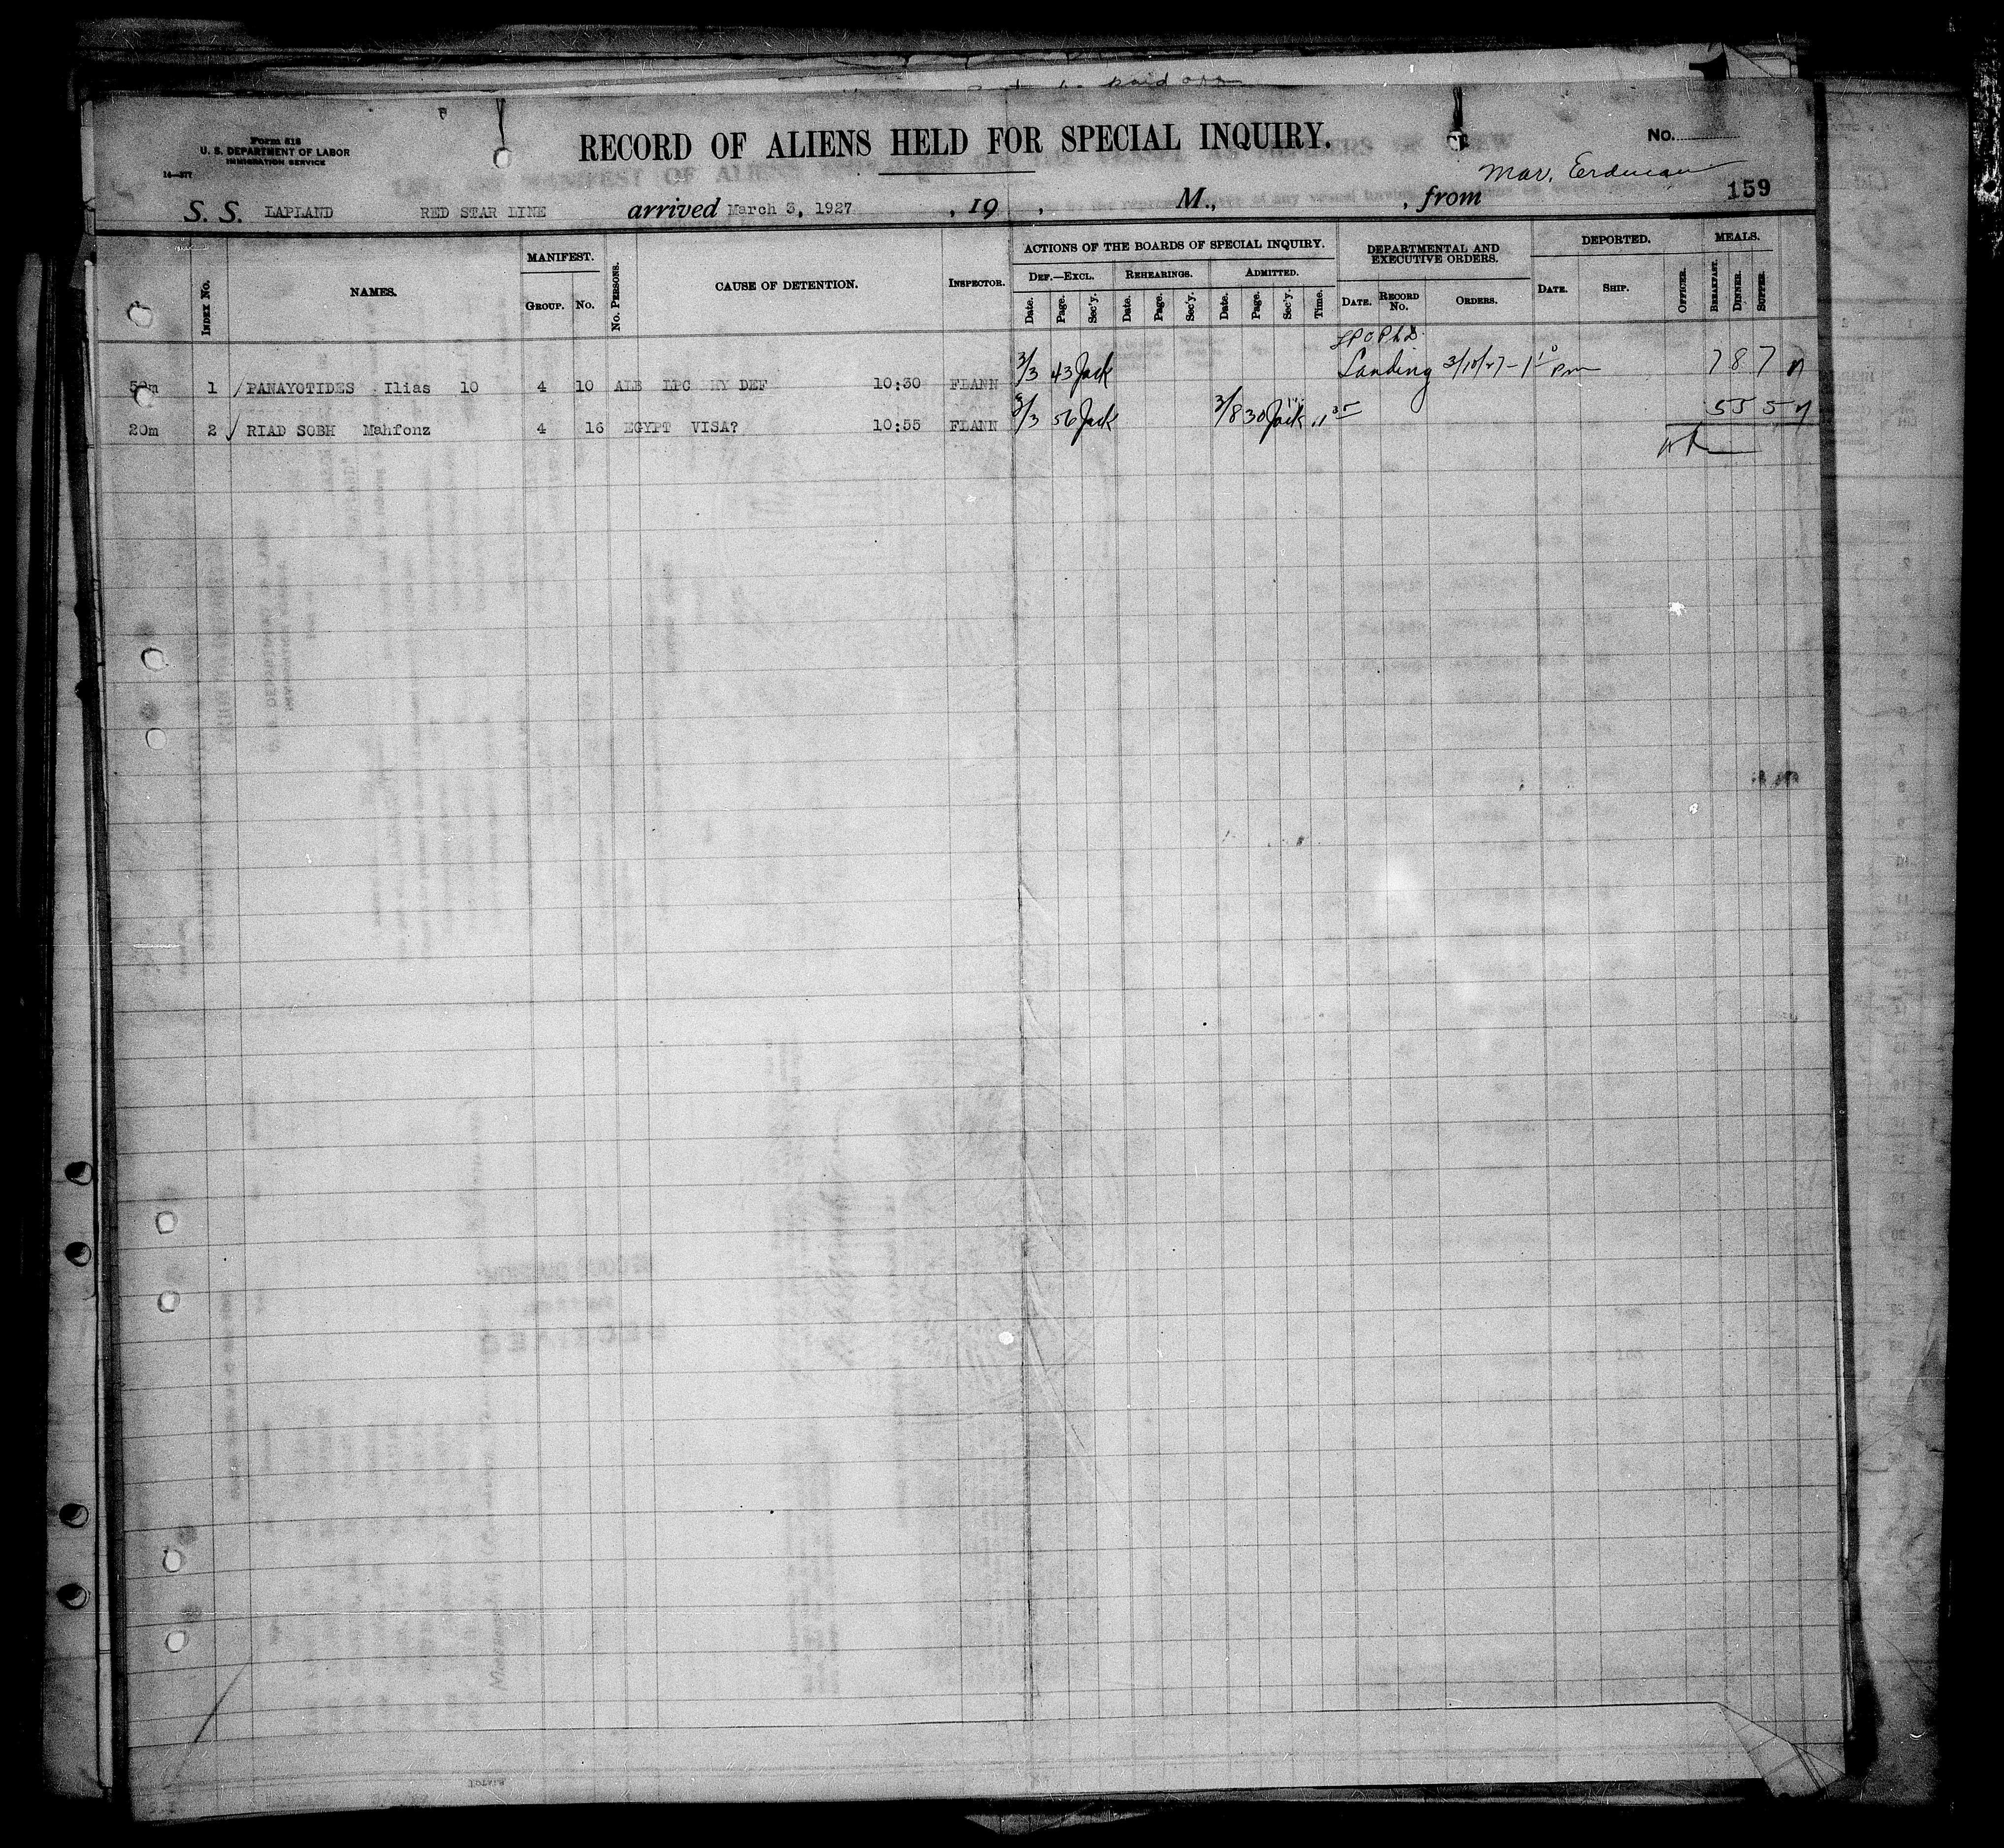 Form 518
U. S. DEPARTMENT OF LABOR
IMMIGRATION SERVICE
14—577
RECORD OF ALIENS HELD FOR SPECIAL INQUIRY.
No.
Mar. Erdman
159
S. S. LAPLAND RED STAR LINE arrived March 3, 1927 , 19 , M., , from
INDEX No.
NAMES.
MANIFEST.
GROUP. No.
No. PERSONS.
CAUSE OF DETENTION.
INSPECTOR.
ACTIONS OF THE BOARDS OF SPECIAL INQUIRY.
DEF.—EXCL. REHEARINGS. ADMITTED.
Date. Page. Sec'y. Date. Page. Sec'y. Date. Page. Sec'y. Time.
DEPARTMENTAL AND EXECUTIVE ORDERS.
DATE. RECORD No. ORDERS.
DEPORTED.
DATE. SHIP. OFFICER.
MEALS.
BREAKFAST. DINNER. SUPPER.
1 PANAYOTIDES Ilias 10 4 10 DEF 10:30 FLANN 3/3 43 Jack Landing 3/10/27 - 1 10 Pm 7 8 7
20m 2 RIAD SOBH Mahfonz 4 16 EGYPT VISA? 10:55 FLANN 3/3 56 Jack 3/8 30 Jack 11 35 5 5 5